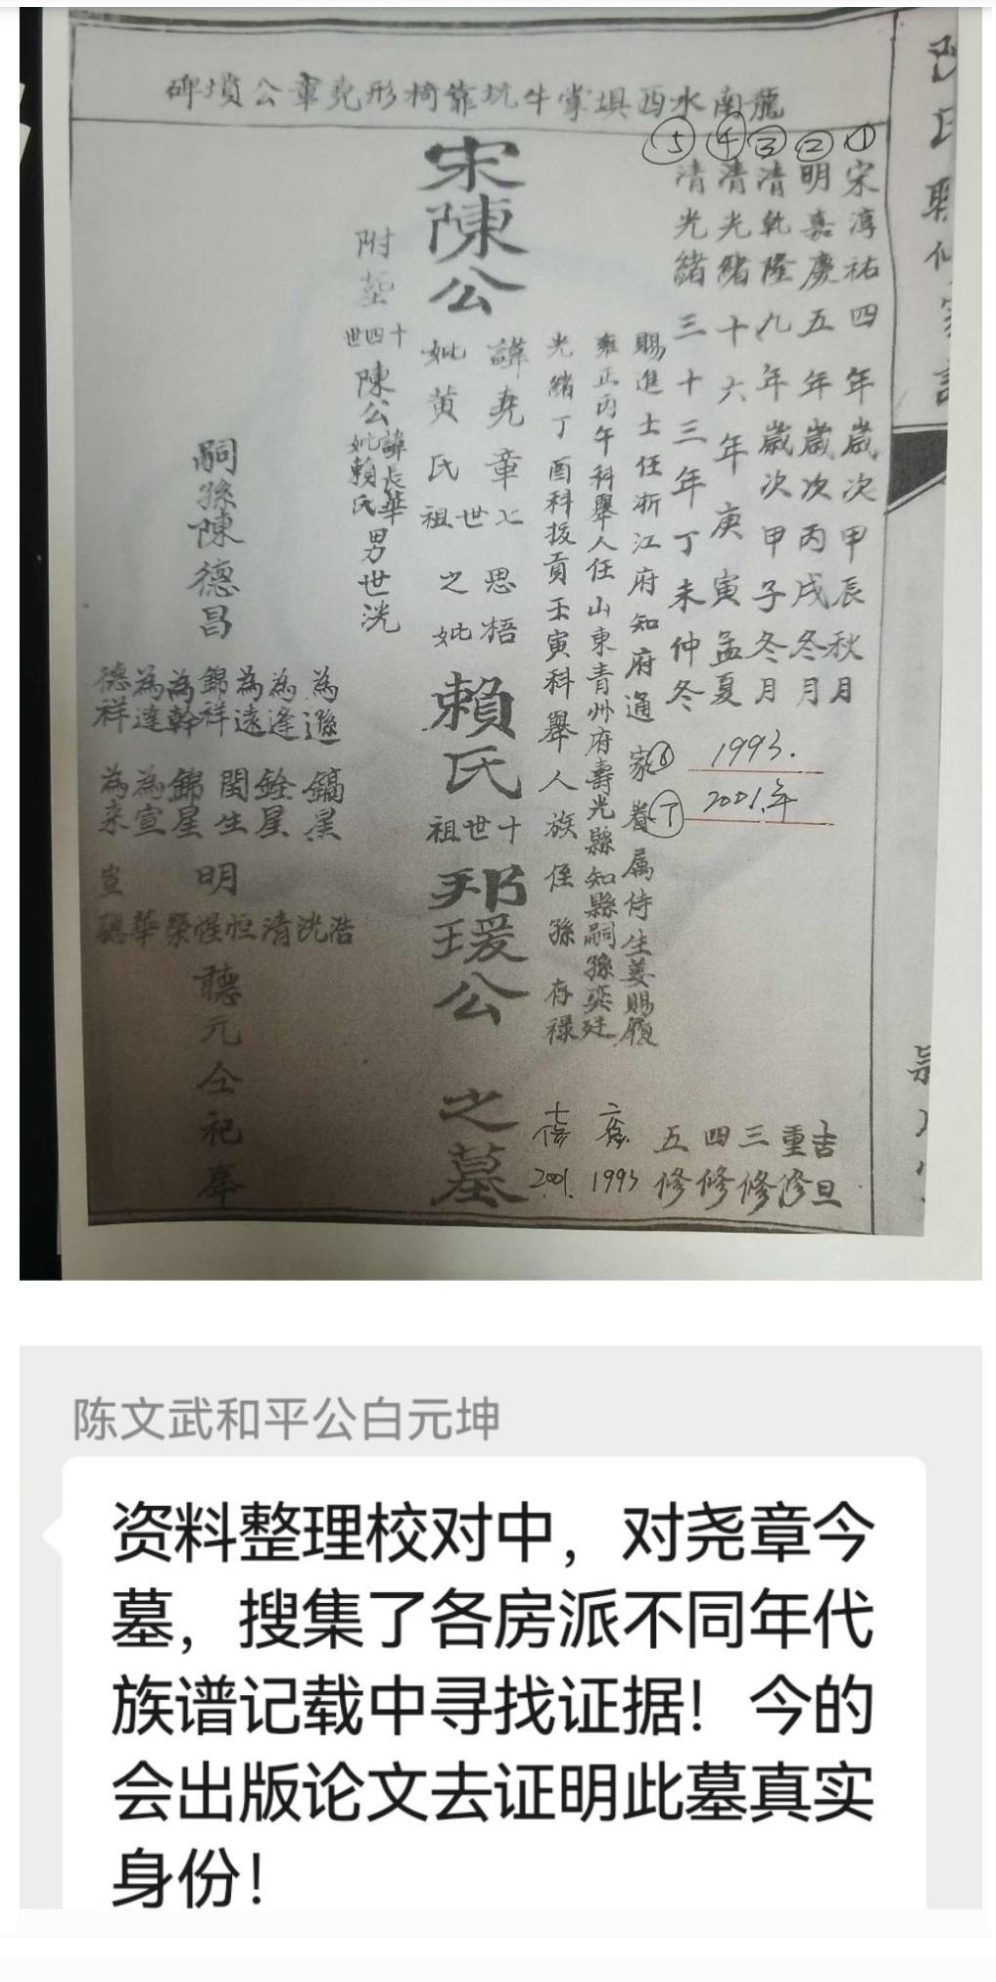 龍南水西垻掌牛坑靠椅形堯章公墳碑
① 宋淳祐四年歲次甲辰秋月 吉旦
② 明嘉慶五年歲次丙戌冬月 重修
③ 清乾隆九年歲次甲子冬月 三修
④ 清光緒十六年庚寅孟夏 四修
⑤ 清光緒三十三年丁未仲冬 五修
⑥ 1993.
⑦ 2001.年
賜進士任浙江府知府通家眷属侍生姜賜履
雍正丙午科舉人任山東青州府壽光縣知縣嗣孫奕廷
六修 1993
光緒丁酉科拔貢壬寅科舉人族侄孫存祿
七修 2001.
諱堯章七世祖
妣黄氏
思梧之妣
宋陳公 賴氏 十世祖 邦瑗公 之墓
附塟
十四世
陳公諱長華
妣賴氏
男世洸
嗣孫陳德昌
為遜 為逢 為遠 錦祥 為幹 為達 德祥
鎬星 銓星 閏生 錦星 為宣 為来
明
浩 洸 清 恒 惺 榮 華 聰
宣
聽元仝祀奉
陈文武和平公白元坤
资料整理校对中，对尧章今
墓，搜集了各房派不同年代
族谱记载中寻找证据！今的
会出版论文去证明此墓真实
身份！